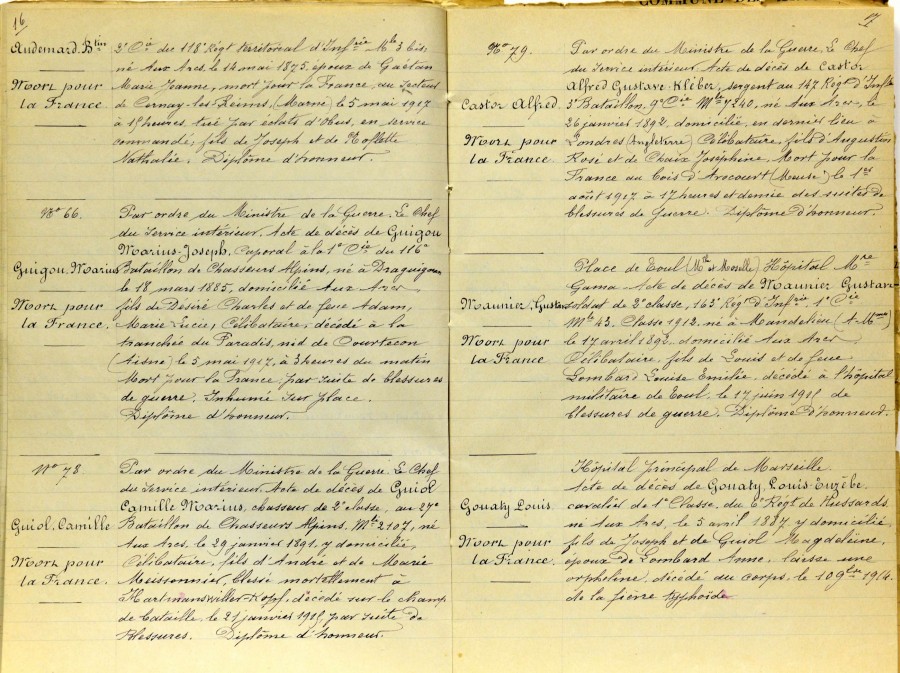 16
Audemard, Btin
Mort pour
la France
2e Cie du 118e Régt territorial d'Infrie Mle 3 bis,
né Aux Arcs, le 14 mai 1875, époux de Gaëtan
Marie Jeanne, mort pour la France, au secteur
de Cernay-les-Reims, (Marne) le 5 mai 1917
à 15 heures, tué par éclats d'Obus, en service
commandé, fils de Joseph et de
Nathalie. Diplôme d'honneur.
No 66.
Guigou, Marius
Mort pour
la France.
Par ordre du Ministre de la Guerre. Le Chef
du Service intérieur. Acte de décès de Guigou
Marius-Joseph, Caporal à la 1e Cie du 116e
Bataillon de Chasseurs Alpins, né à Draguignan
le 18 mars 1885, domicilié Aux Arcs,
fils de Désiré Charles et de feue Adam,
Marie Lucie, Célibataire, décédé à la
tranchée du Paradis, nid de Courtecon
(Aisne) le 5 mai 1917, à 3 heures du matin
Mort pour la France par suite de blessures
de guerre. Inhumé sur place.
Diplôme d'honneur.
No 78
Guiol, Camille
Mort pour
la France.
Par ordre du Ministre de la Guerre. Le Chef
du Service intérieur. Acte de décès de Guiol
Camille Marius, chasseur de 2e classe, au 27e
Bataillon de Chasseurs Alpins, Mle 2107, né
Aux Arcs, le 29 janvier 1891, y domicilié,
Célibataire, fils d'André et de Marie
Meissonnier, blessé mortellement à
Hartmanswiller-Kopf, décédé sur le champ
de bataille, le 21 janvier 1915 par suite de
blessures. Diplôme d'honneur.
17
No 79.
Castor Alfred.
Mort pour
la France
Par ordre du Ministre de la Guerre. Le Chef
du Service intérieur Acte de décès de Castor
Alfred Gustave-Kléber, sergent au 147 Régt d'Infie
5e Bataillon, 9e Cie Mle 7240, né Aux Arcs, le
26 janvier 1892, domicilié, en dernier lieu à
Londres (Angleterre) Célibataire, fils d'Augustin
Rosé et de Chaix Joséphine. Mort pour la
France au bois d'Avocourt (Meuse) le 1er
août 1917 à 17 heures et demie des suites de
blessures de Guerre. Diplôme d'honneur.
Maunier, Gustave
Mort pour
la France
Place de Toul (Mthe et Moselle) Hôpital Mre
Gama Acte de décès de Maunier Gustave
soldat de 2e classe, 163e Régt d'Infrie, 1e Cie
Mle 43. Classe 1912, né à Mandelieu
le 17 avril 1892, domicilié Aux Arcs
Célibataire, fils de Louis et de feue
Lombard Louise Emilie, décédé à l'hôpital
militaire de Toul, le 17 juin 1915 de
blessures de guerre. Diplôme d'honneur.
Gouaty Louis.
Mort pour
la France.
Hôpital principal de Marseille.
Acte de décès de Gouaty, Louis-Euzèbe,
cavalier de 1e Classe, du 6e Régt de Hussards
né Aux Arcs, le 5 avril 1887, y domicilié,
fils de Joseph et de Guiol Magdeleine,
époux de Lombard Anne, laisse une
orpheline, décédé au corps, le 10 9bre 1914.
de la fièvre typhoïde